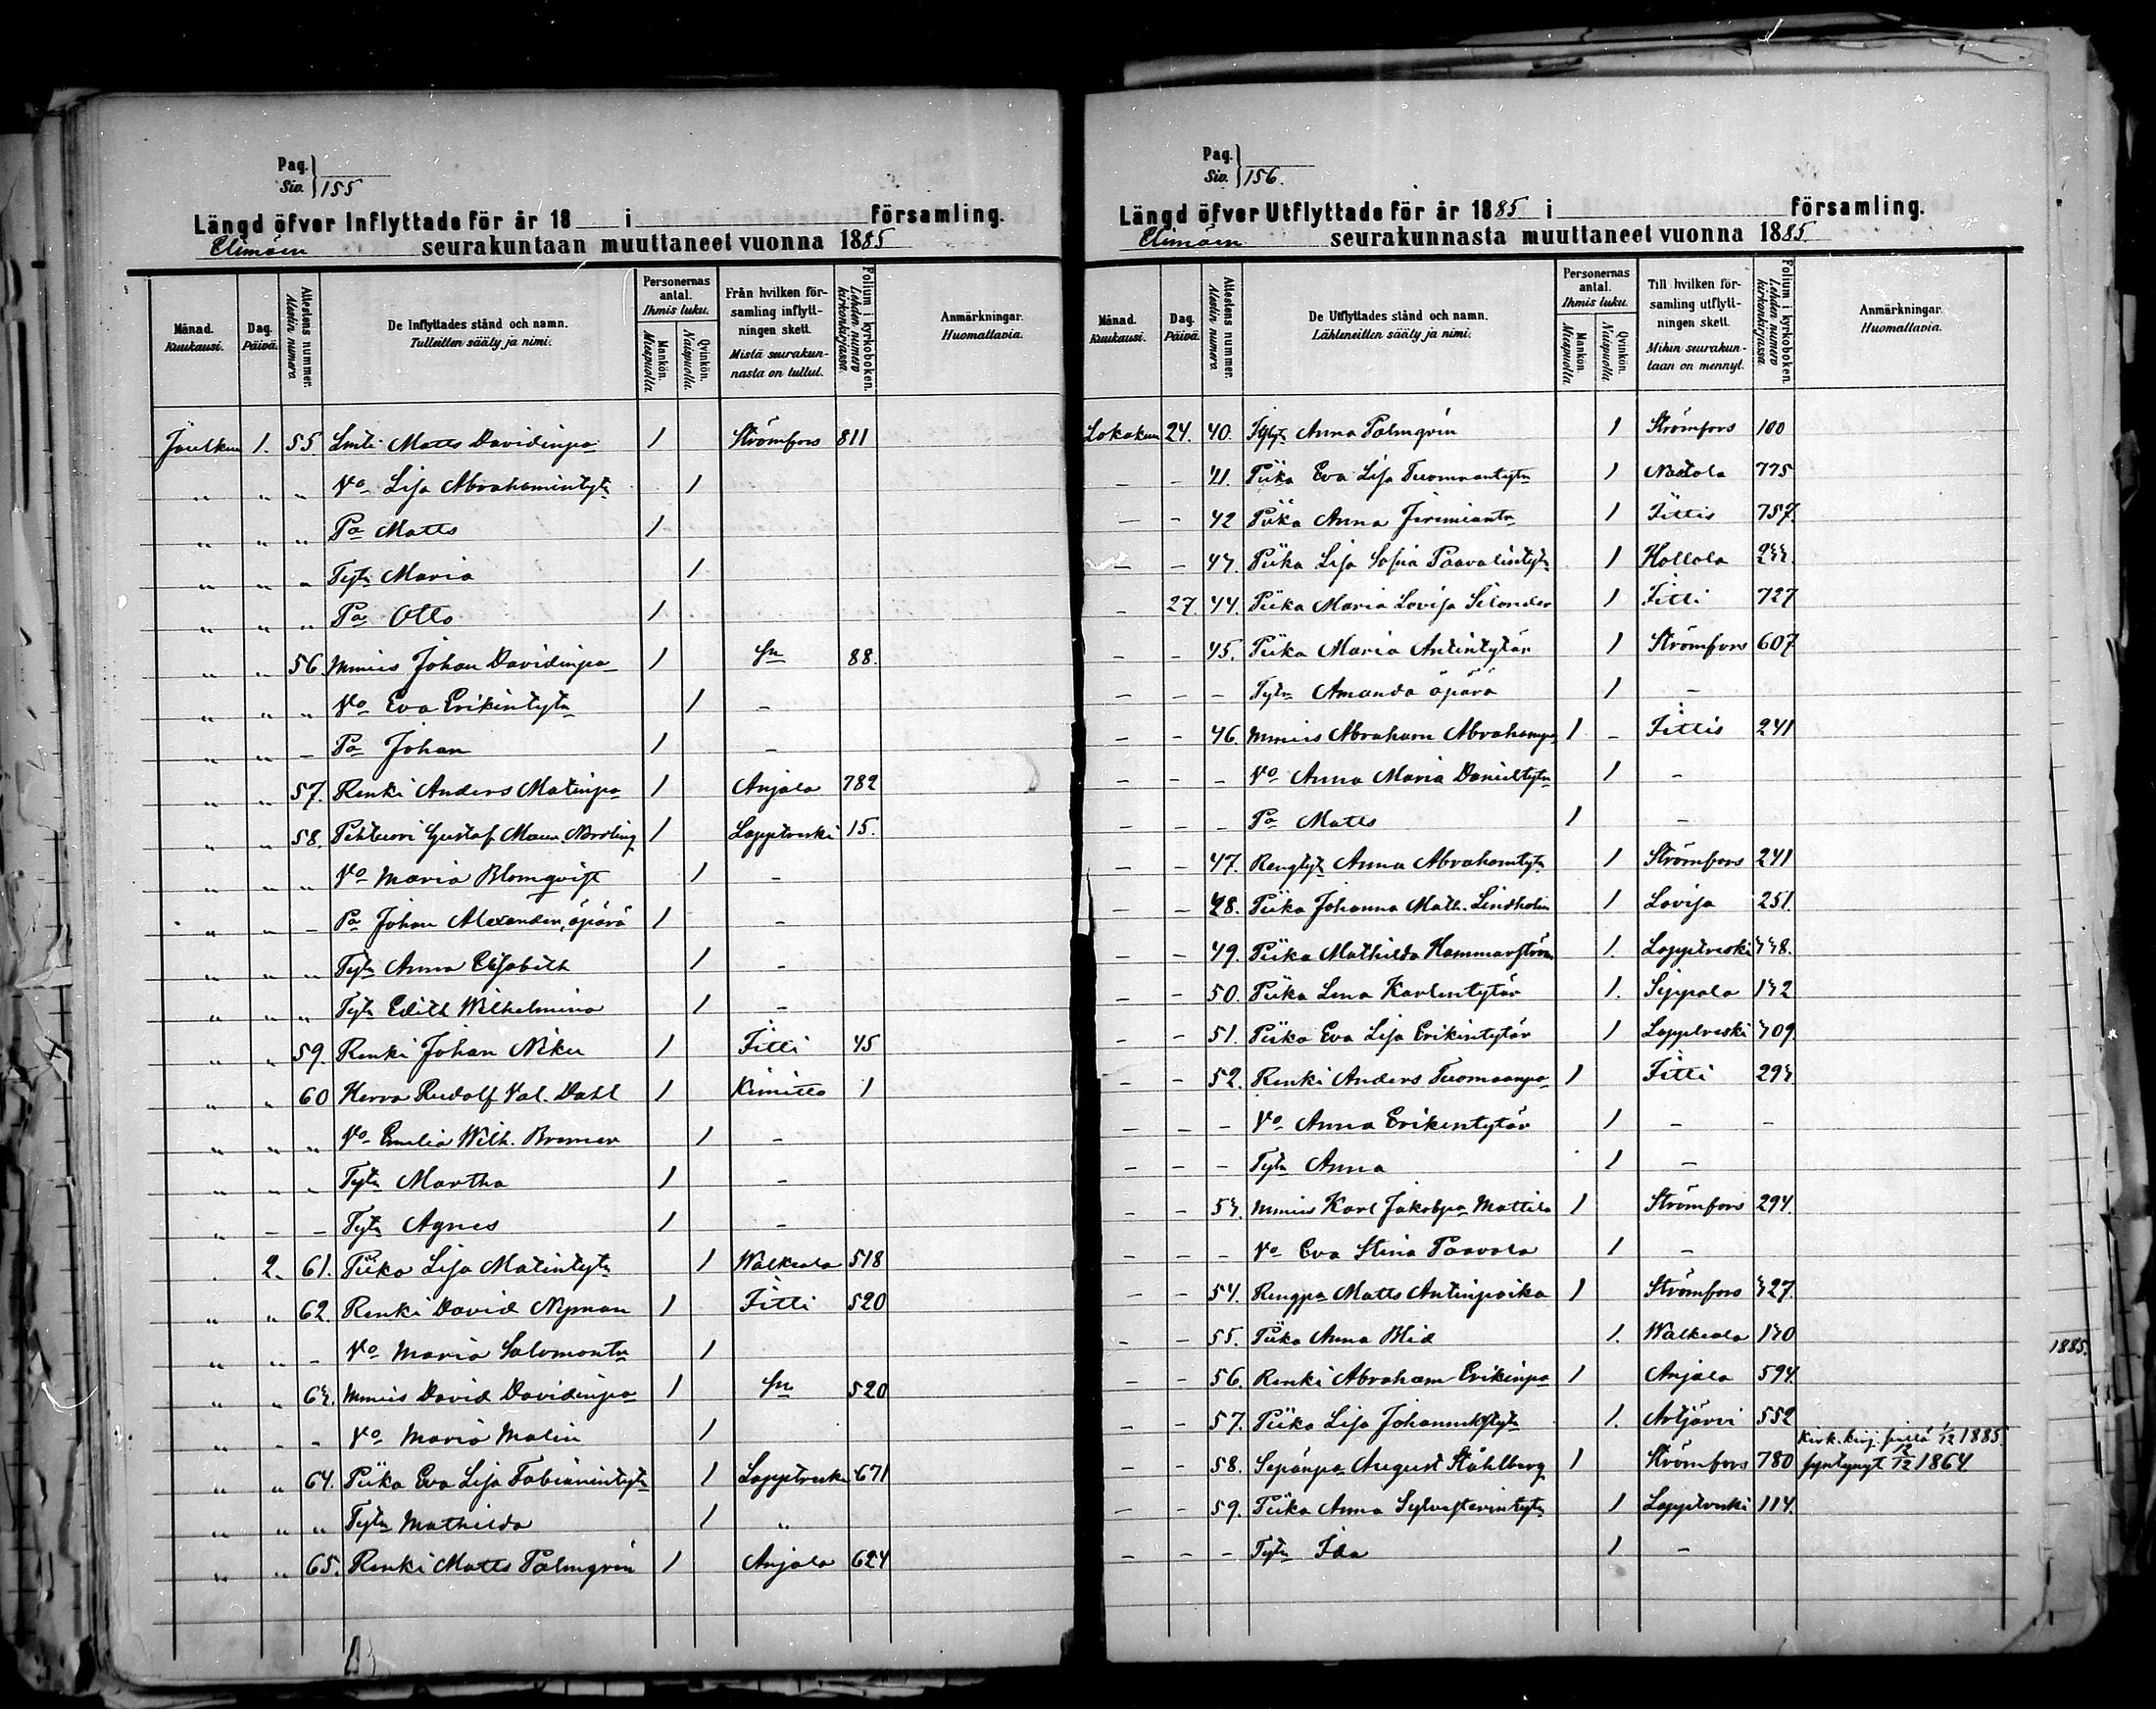 Pag.
Siv. 155
Längd öfver Inflyttade för år 18 i församling.
Elimäen seurakuntaan muuttaneet vuonna 1885
Månad. Kuukausi.
Dag. Päivä.
Attestens nummer. Atestin numero.
De Inflyttades stånd och namn. Tulleitten sääty ja nimi.
Personernas antal. Ihmis luku.
Mankön. Miespuolia.
Qvinkön. Naispuolia.
Från hvilken församling inflyttningen skett. Mistä seurakunnasta on tullut.
Folium i kyrkoboken. Lehden numero kirkonkirjassa.
Anmärkningar. Huomattavia.
Joulkuu 1. 55 Matts Davidinpa 1 Strömfors 811
" " " Vo Lisa Abrahamintytr 1
" " " Pa Matts 1
" " " Tytr Maria 1
" " " Pa Otto 1
" " 56 Mmies Johan Davidinpa 1 Sn 88.
" " " Vo Eva Erikintytr 1 -
" " - Pa Johan 1 -
" " 57. Renki Anders Matinpa 1 Anjala 782
" " 58. Gustaf Maur. Nordling 1 Lappträski 15.
" " " Vo Maria Blomqvist 1 -
" " - Pa Johan Alexander, äpärä 1 -
" " " Tytr Anna Elisabeth 1 -
" " " Tytr Edith Wilhelmina 1 -
" " 59. Renki Johan Niku 1 Jitti 45
" " 60 Herra Rudolf Val. Dahl 1 Kimitto 1
" " " Vo Emilia Wilh. Bremer 1 -
" " " Tytr Martha 1 -
" - - Tytr Agnes 1 -
. 2. 61. Piika Lisa Matintytr 1 Walkeala 518
" " 62. Renki David Nyman 1 Jitti 520
" " - Vo Maria Salomontr 1
" " 63. Mmies David Davidinpa 1 Sn 520
" " - Vo Maria Malin 1
" " 64. Piika Eva Lisa Fabianintytr 1 Lappträski 671
" " " Tytr Mathilda 1 "
" " 65. Renki Matts Palmqvin 1 Anjala 624
Pag.
Siv. 156.
Längd öfver Utflyttade för år 1885 i församling.
Elimäen seurakunnasta muuttaneet vuonna 1885.
Månad. Kuukausi.
Dag. Päivä.
Attestens nummer. Atestin numero.
De Utflyttades stånd och namn. Lähteneitten sääty ja nimi.
Personernas antal. Ihmis luku.
Mankön. Miespuolia.
Qvinkön. Naispuolia.
Till hvilken församling utflyttningen skett. Mihin seurakuntaan on mennyt.
Folium i kyrkoboken. Lehden numero kirkonkirjassa.
Anmärkningar. Huomattavia.
Lokakuu 24. 40. Anna Palmqvin 1 Strömfors 100
- - 41. Piika Eva Lisa Tuomaantytr 1 Nastola 775
- - 42 Piika Anna Jeremiantr 1 Jittis 757.
- - 43. Piika Lisa Sofia Paavalintytr 1 Hollola 233.
- 27. 44. Piika Maria Lovisa Silander 1 Jitti 727
- - 45. Piika Maria Antintytär 1 Strömfors 607
- - - Tytr Amanda äpärä 1 -
- - 46. Mmies Abraham Abrahampa 1 - Jittis 241
- - - Vo Anna Maria Danieltytr 1 -
- - - Pa Matts 1 -
- - 47. Rengtytr Anna Abrahamtytr 1 Strömfors 241
- - 48. Piika Johanna Math. Lindholm 1 Lovisa 251.
- - 49. Piika Mathilda Hammarström 1. Lappträski 338.
- - 50. Piika Lena Karlintytär 1. Sippola 132
- - 51. Piika Eva Lisa Erikintytär 1 Lappträski 309.
- - 52. Renki Anders Tuomaanpa 1 Jitti 293
- - - Vo Anna Erikintytär 1 - -
- - - Tytr Anna 1 -
- - 53. Mmies Karl Jakobpa Mattila 1 Strömfors 294.
- - - Vo Eva Stina Paavola 1 -
- - 54. Rengpa Matts Antinpoika 1 Strömfors 327.
- - 55. Piika Anna Blid 1. Walkeala 130
- - 56. Renki Abraham Erikinpa 1 Anjala 594.
- - 57. Piika Lisa Johannestytr 1. Artjärvi 552
- - 58. Sepänpa August Ståhlberg 1 Strömfors 780 Kirk. kirj. 1/12 1885. syntynyt 12/12 1864
- - 59. Piika Anna Sylvesterintytr 1 Lappträski 114.
- - - Tytr Ida 1 -
1885.